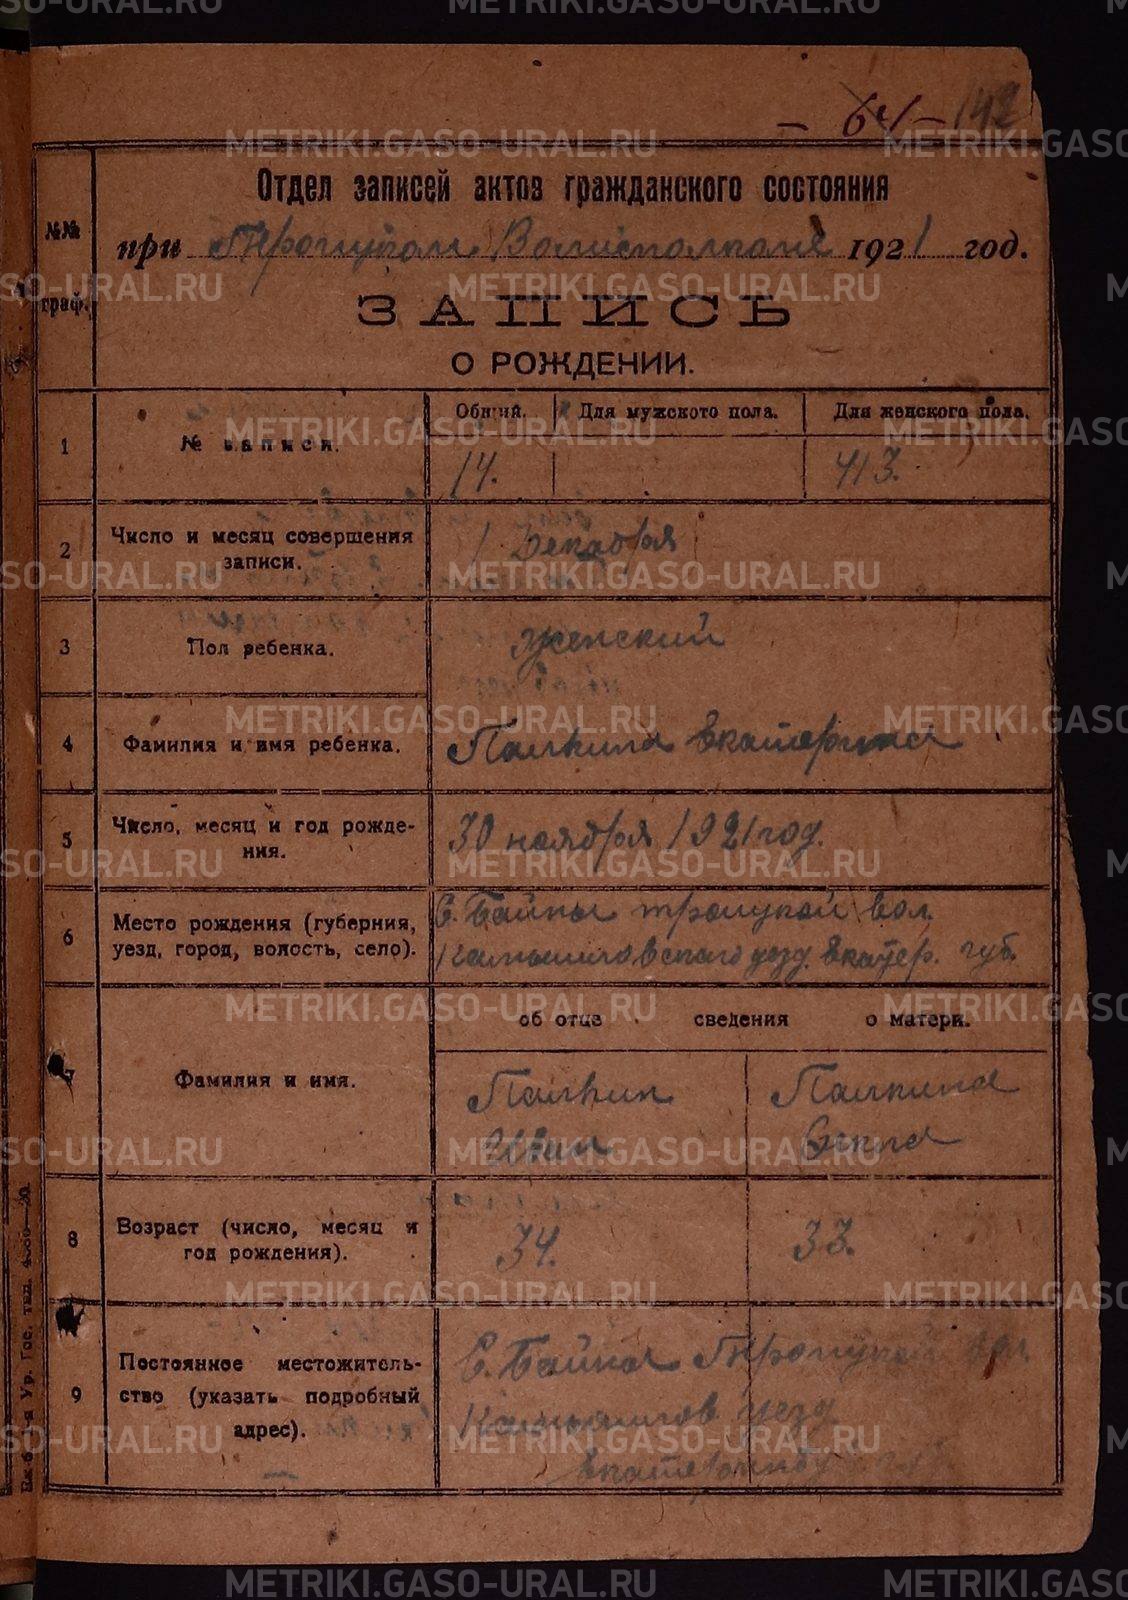 - 64 - 142
Отдел записей актов гражданского состояния
при Троицком Волисполкоме 1921 год.
№№ граф.
ЗАПИСЬ
О РОЖДЕНИИ.
1 № записи. Общий. Для мужского пола. Для женского пола.
14. 
2 Число и месяц совершения записи. 1 Декабря
3 Пол ребенка. женский
4 Фамилия и имя ребенка. Палкина Екатерина
5 Число, месяц и год рождения. 30 ноября 1921 год.
6 Место рождения (губерния, уезд, город, волость, село). С. Байны троицкой вол.
Камышловского уезд. Екатер. губ.
об отце сведения о матери.
7 Фамилия и имя. Палкин Палкина
8 Возраст (число, месяц и год рождения). 34. 33.
9 Постоянное местожительство (указать подробный адрес). С. Байны Троицкой вол.
Камышлов уезд
METRIKI.GASO-URAL.RU